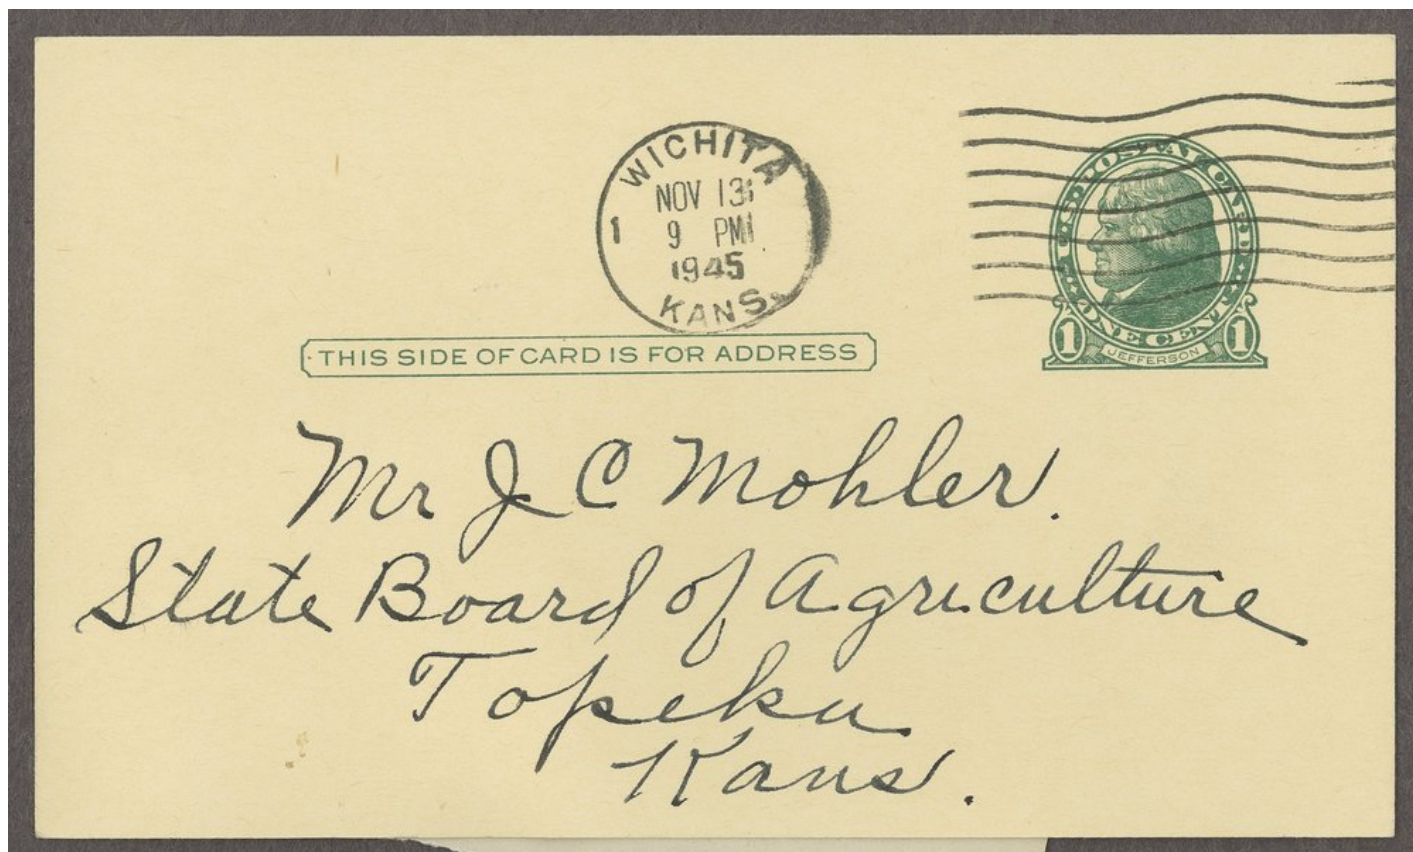 WICHITA
NOV 13
1 9 PM
1945
KANS.
U.S. POSTAL CARD
ONE CENT
1 JEFFERSON 1
THIS SIDE OF CARD IS FOR ADDRESS
Mr J C Mohler.
State Board of Agriculture
Topeka
Kans.